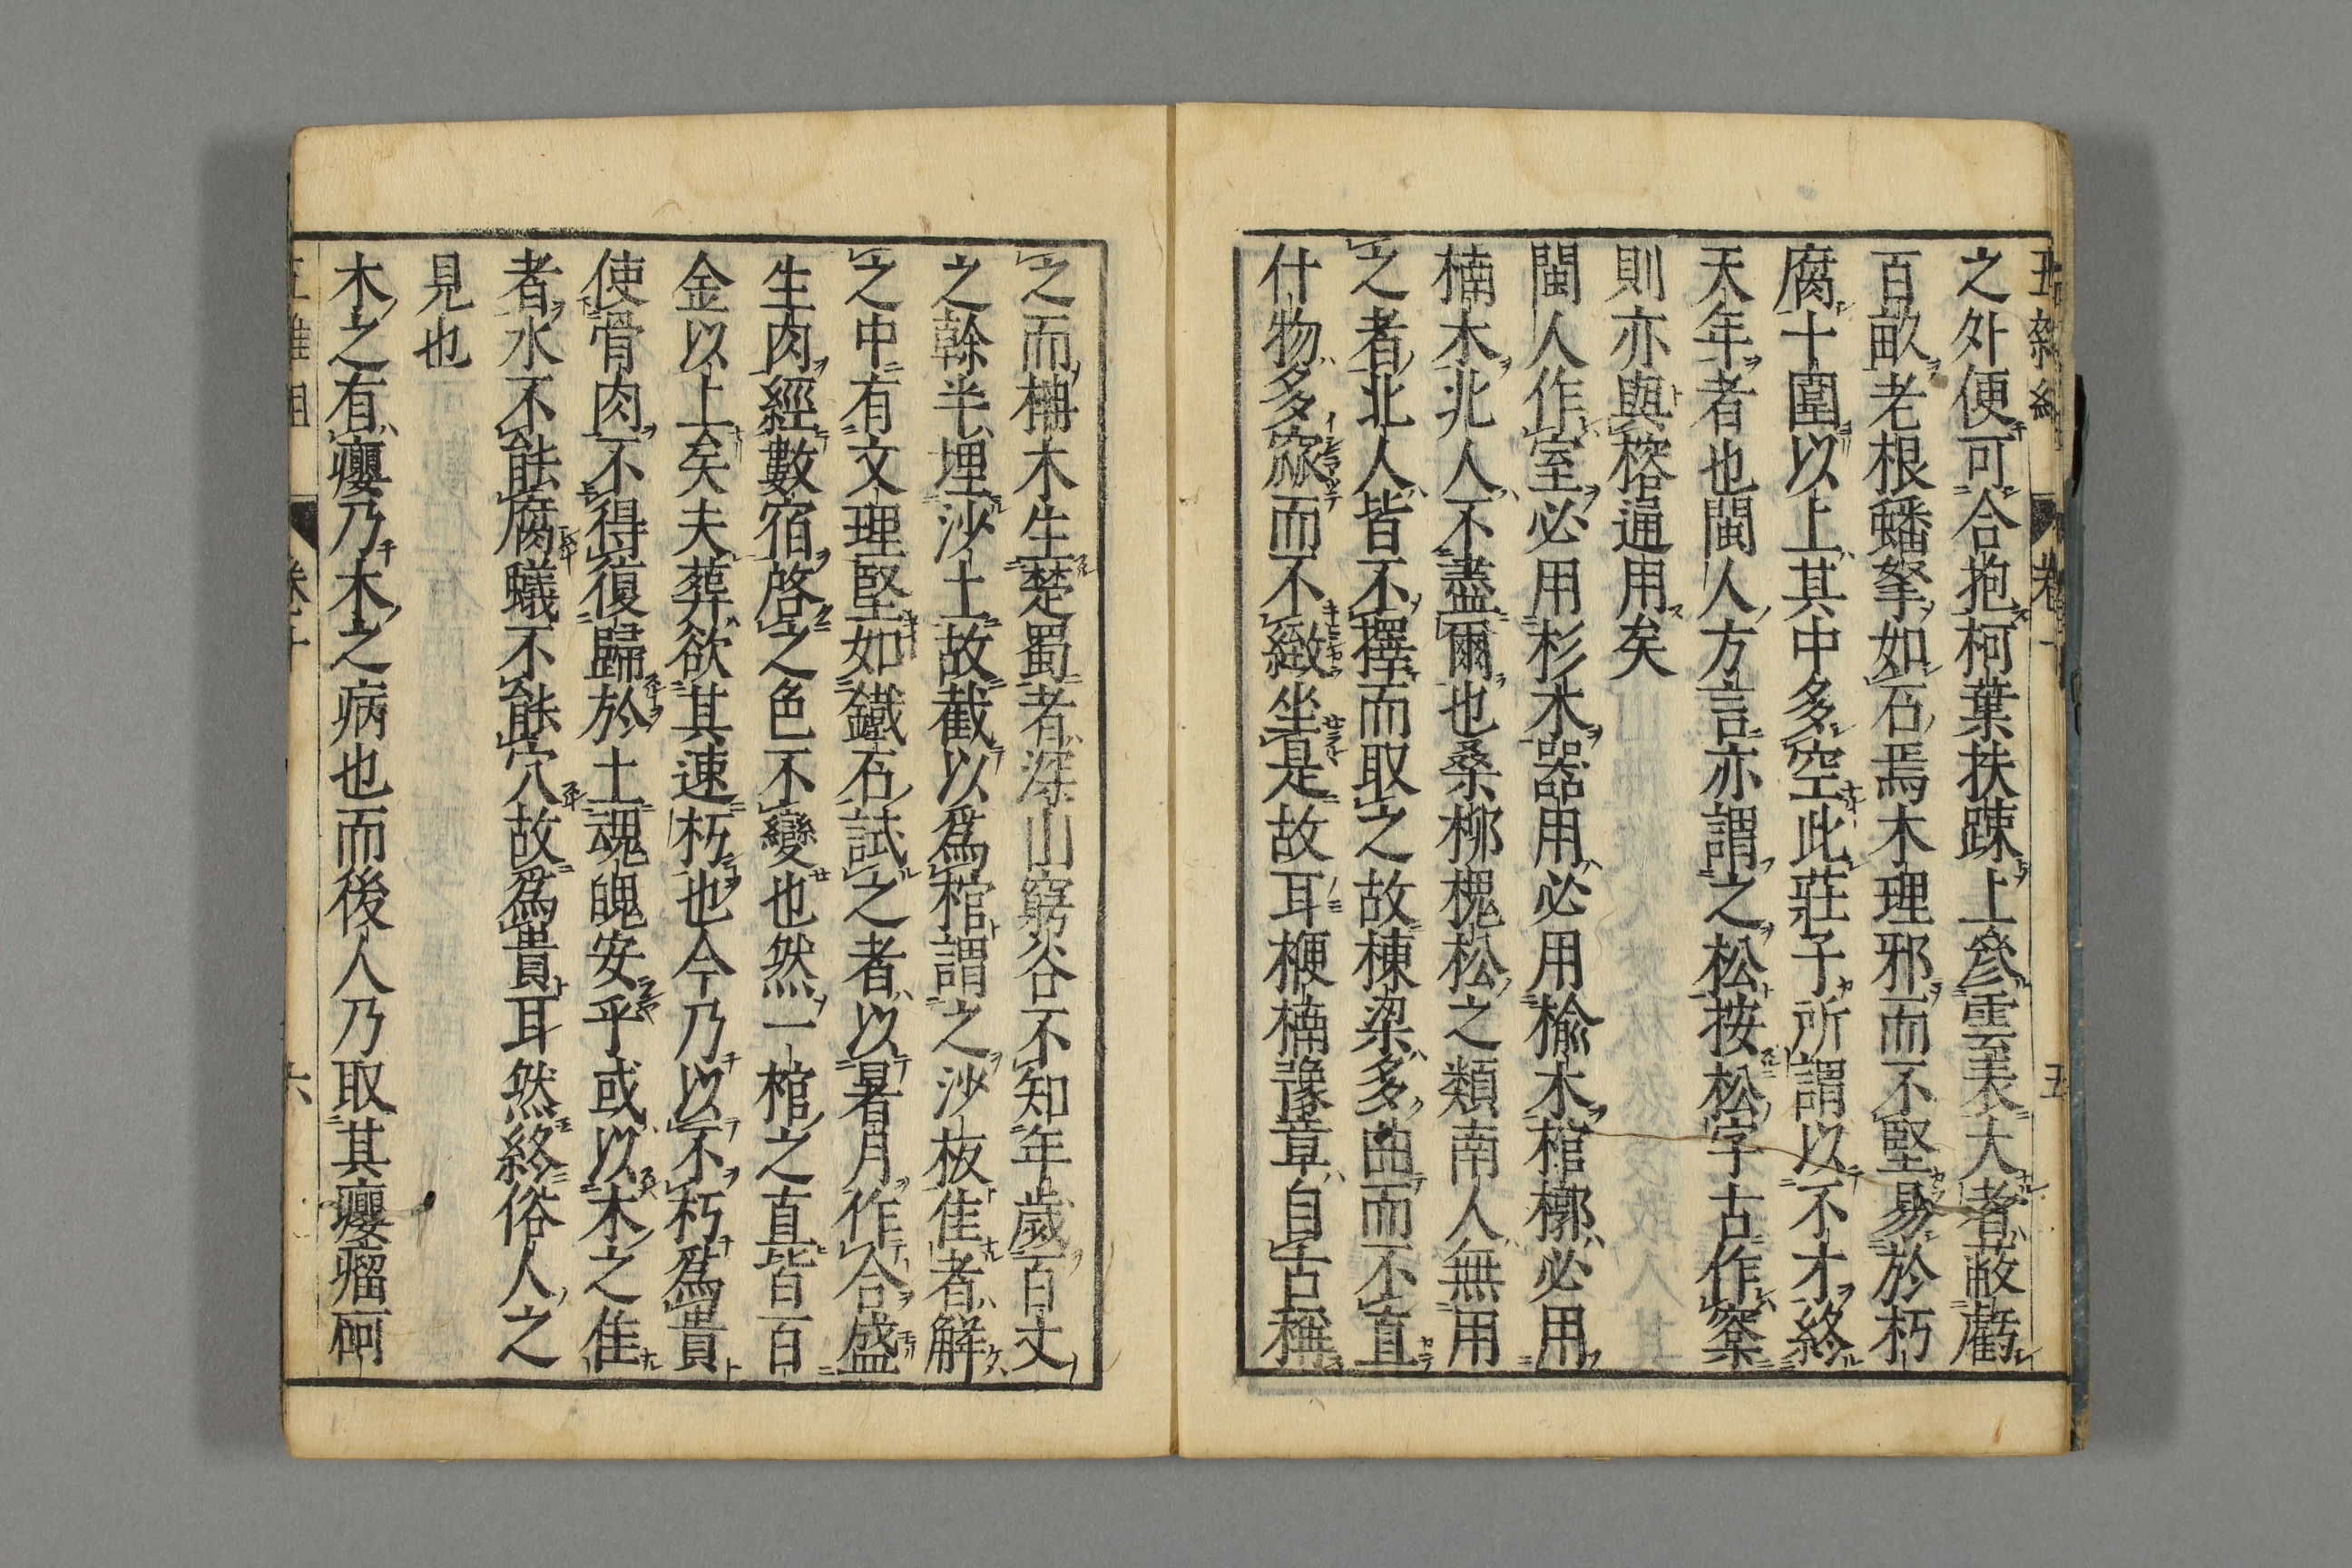 之外便可合抱柯葉扶踈上參雲表大者蔽虧
百畝老根蟠拏如石焉木理邪而不堅易於朽
腐十圍以上其中多空此莊子所謂以不才終
天年者也閩人方言亦謂之松按松字古作㮤
則亦與榕通用矣
閩人作室必用杉木器用必用榆木棺槨必用
楠木北人不盡爾也桑柳槐松之類南人無用
之者北人皆不擇而取之故棟梁多曲而不直
什物多窳而不緻坐是故耳楩楠豫章自古稱
之而楠木生楚蜀者深山窮谷不知年歲百丈
之幹半埋沙土故截以爲棺謂之沙板佳者解
之中有文理堅如鐵石試之者以暑月作合盛
生肉經數宿啓之色不變也然一棺之直皆百
金以上矣夫葬欲其速朽也今乃以不朽爲貴
使骨肉不得復歸於土魂魄安乎或以木之佳
者水不能腐蟻不能穴故爲貴耳然終俗人之
見也
木之有癭乃木之病也而後人乃取其癭瘤砢
六